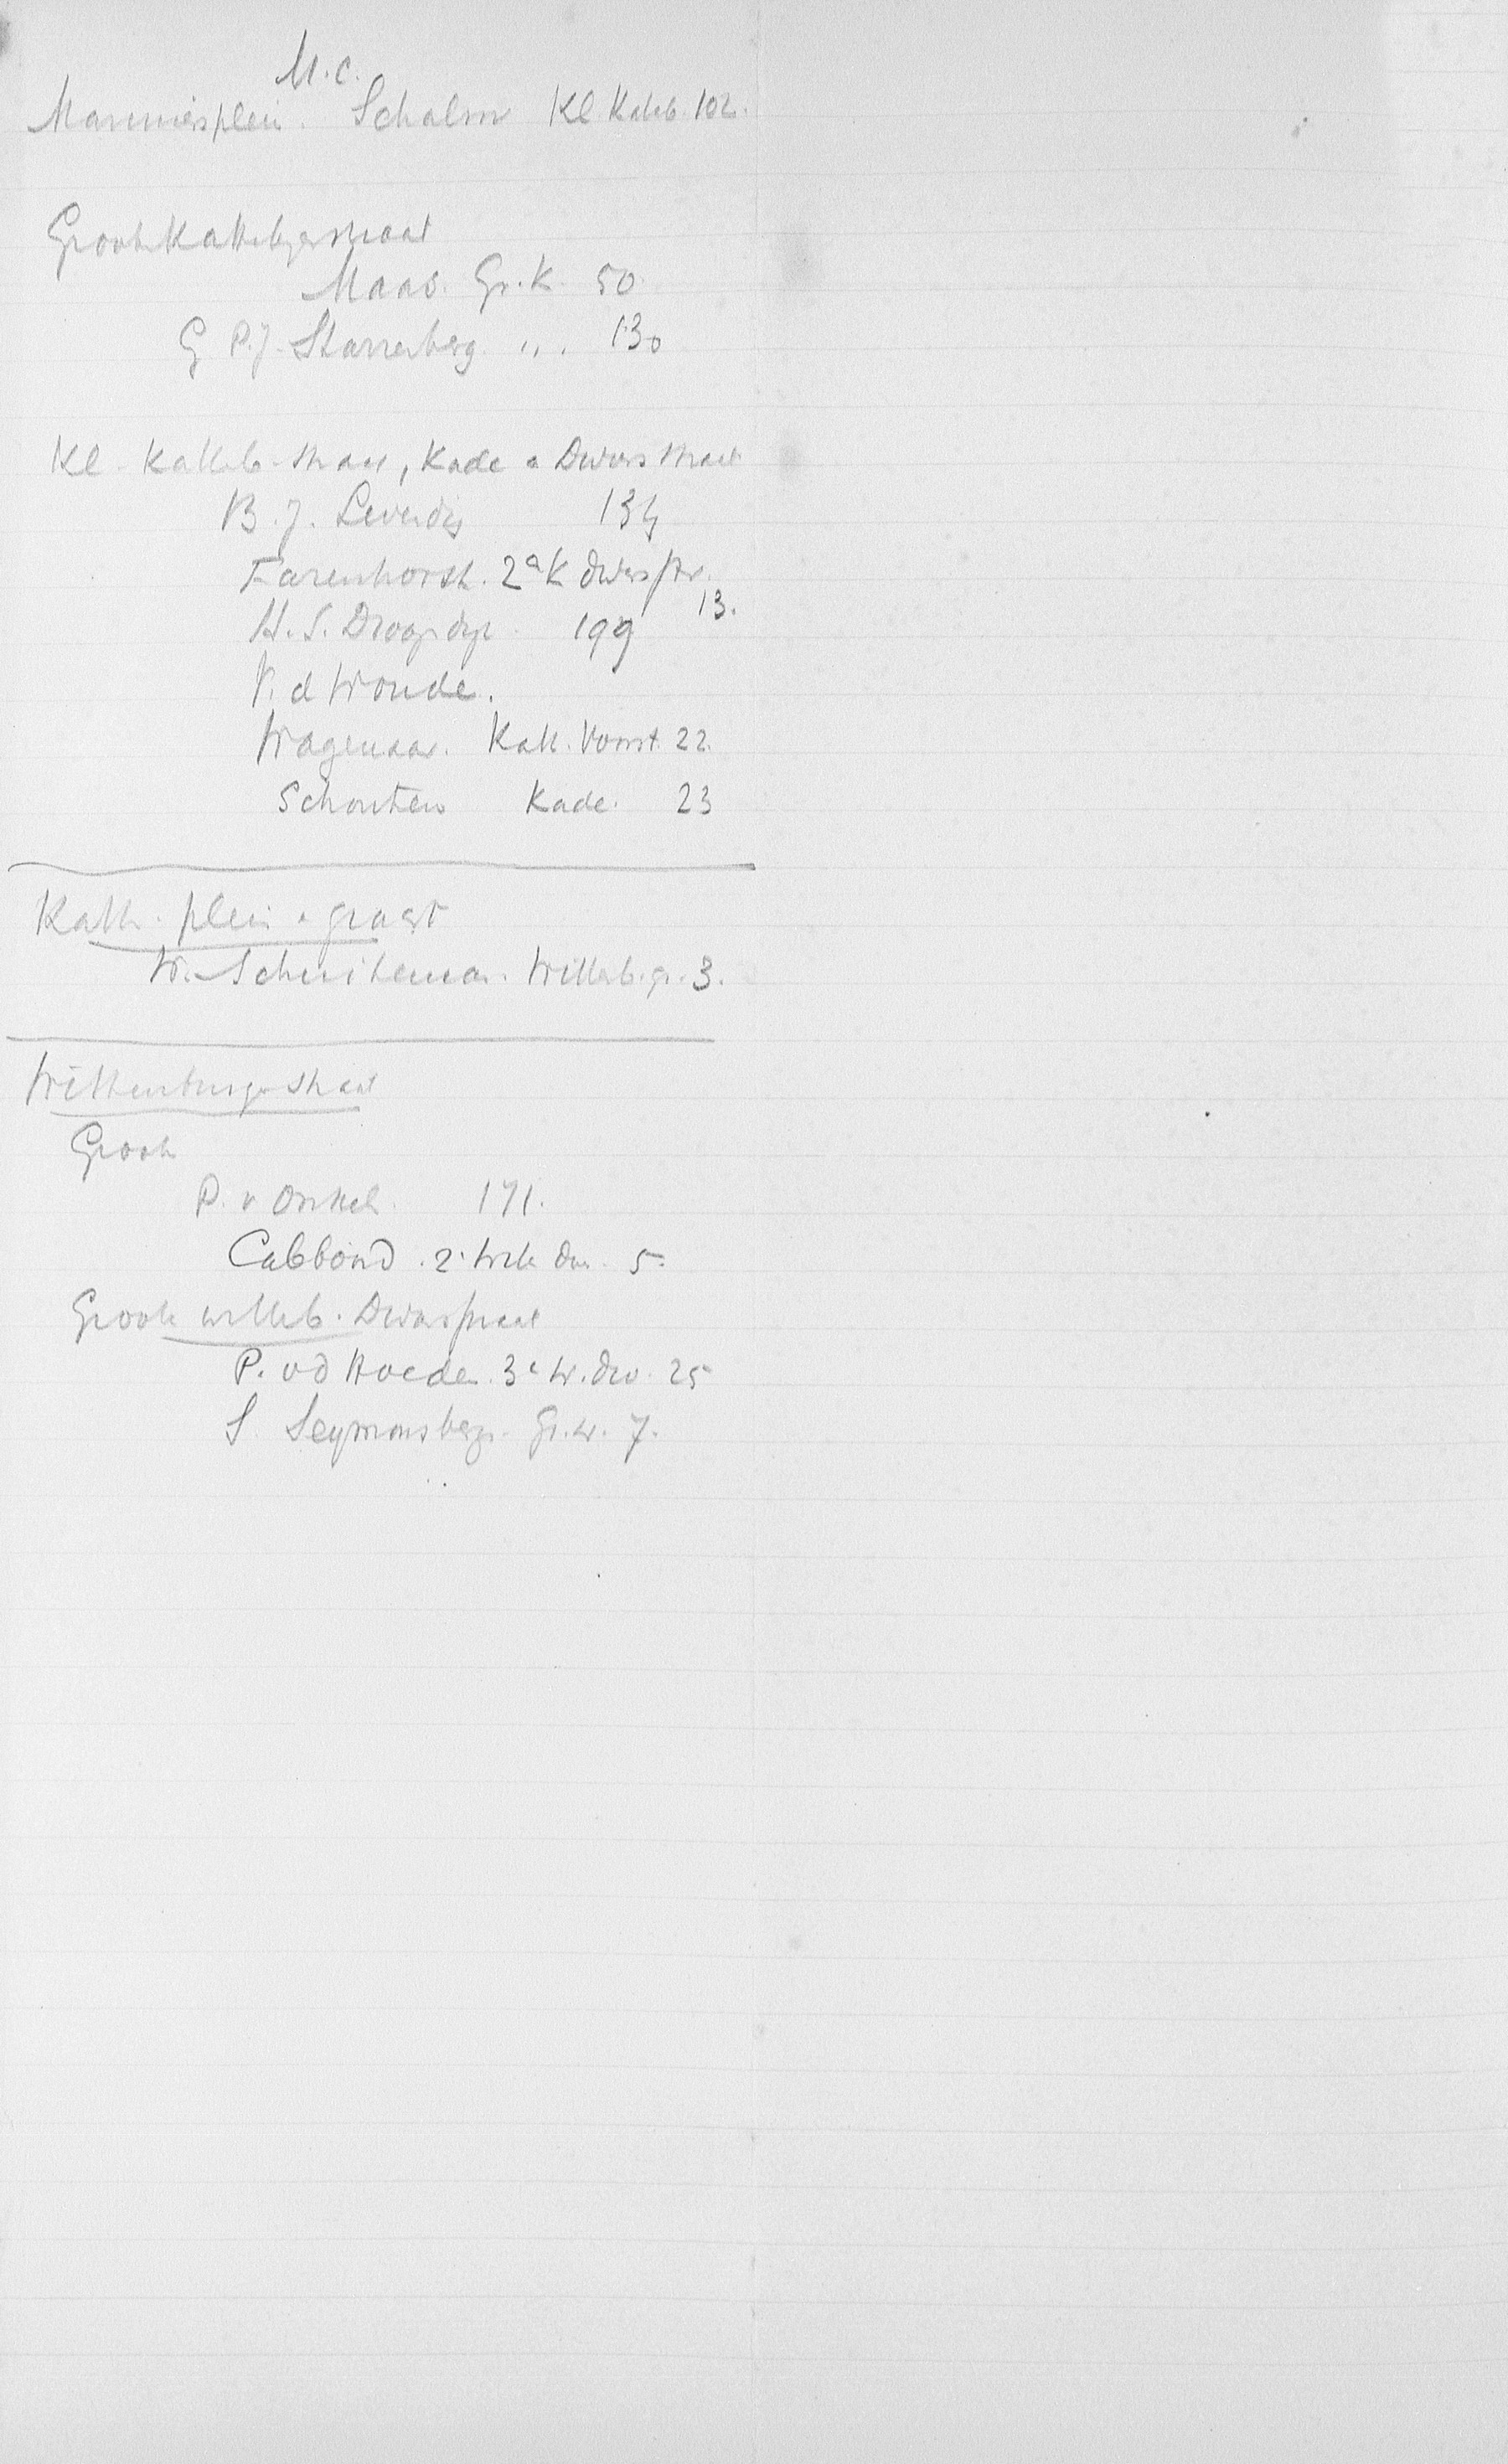 M.C.
Mariniersplein. Schalm Kl Katteb 102.
Groote Kattebgerstraat
Maas. Gr. K. 50
G P.J. Starrenberg " . 130
Kl. Katteb. straat, Kade & Dwarsstraat
B. J. Leverdig 134
Farenhorst. 2e K dwarsstr. 13.
H. S. Droogdijk. 199
V. d Woude.
Wagenaar. Katt. Voorst. 22.
Schouten Kade. 23
Katt. plein & gracht
W. Schuitema. Witteb. gr. 3.
Wittenburgerstraat
Groote
P. v 171.
Cabboud. 2e Witt dw. 5.
Groote Witteb. Dwarsstraat
P. vd 3e W. dw. 25
S. Seymonsberg. Gr. W. 7.